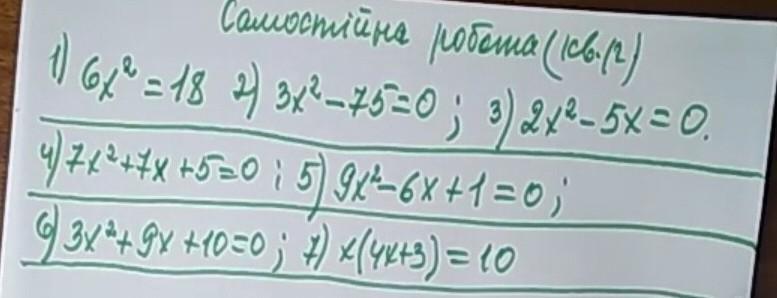 Самостійна робота (кв.р)
1) 6x² = 18 2) 3x² - 75 = 0 ; 3) 2x² - 5x = 0.
4) 7x² + 7x + 5 = 0 ; 5) 9x² - 6x + 1 = 0 ;
6) 3x² + 9x + 10 = 0 ; 7) x(4x+3) = 10